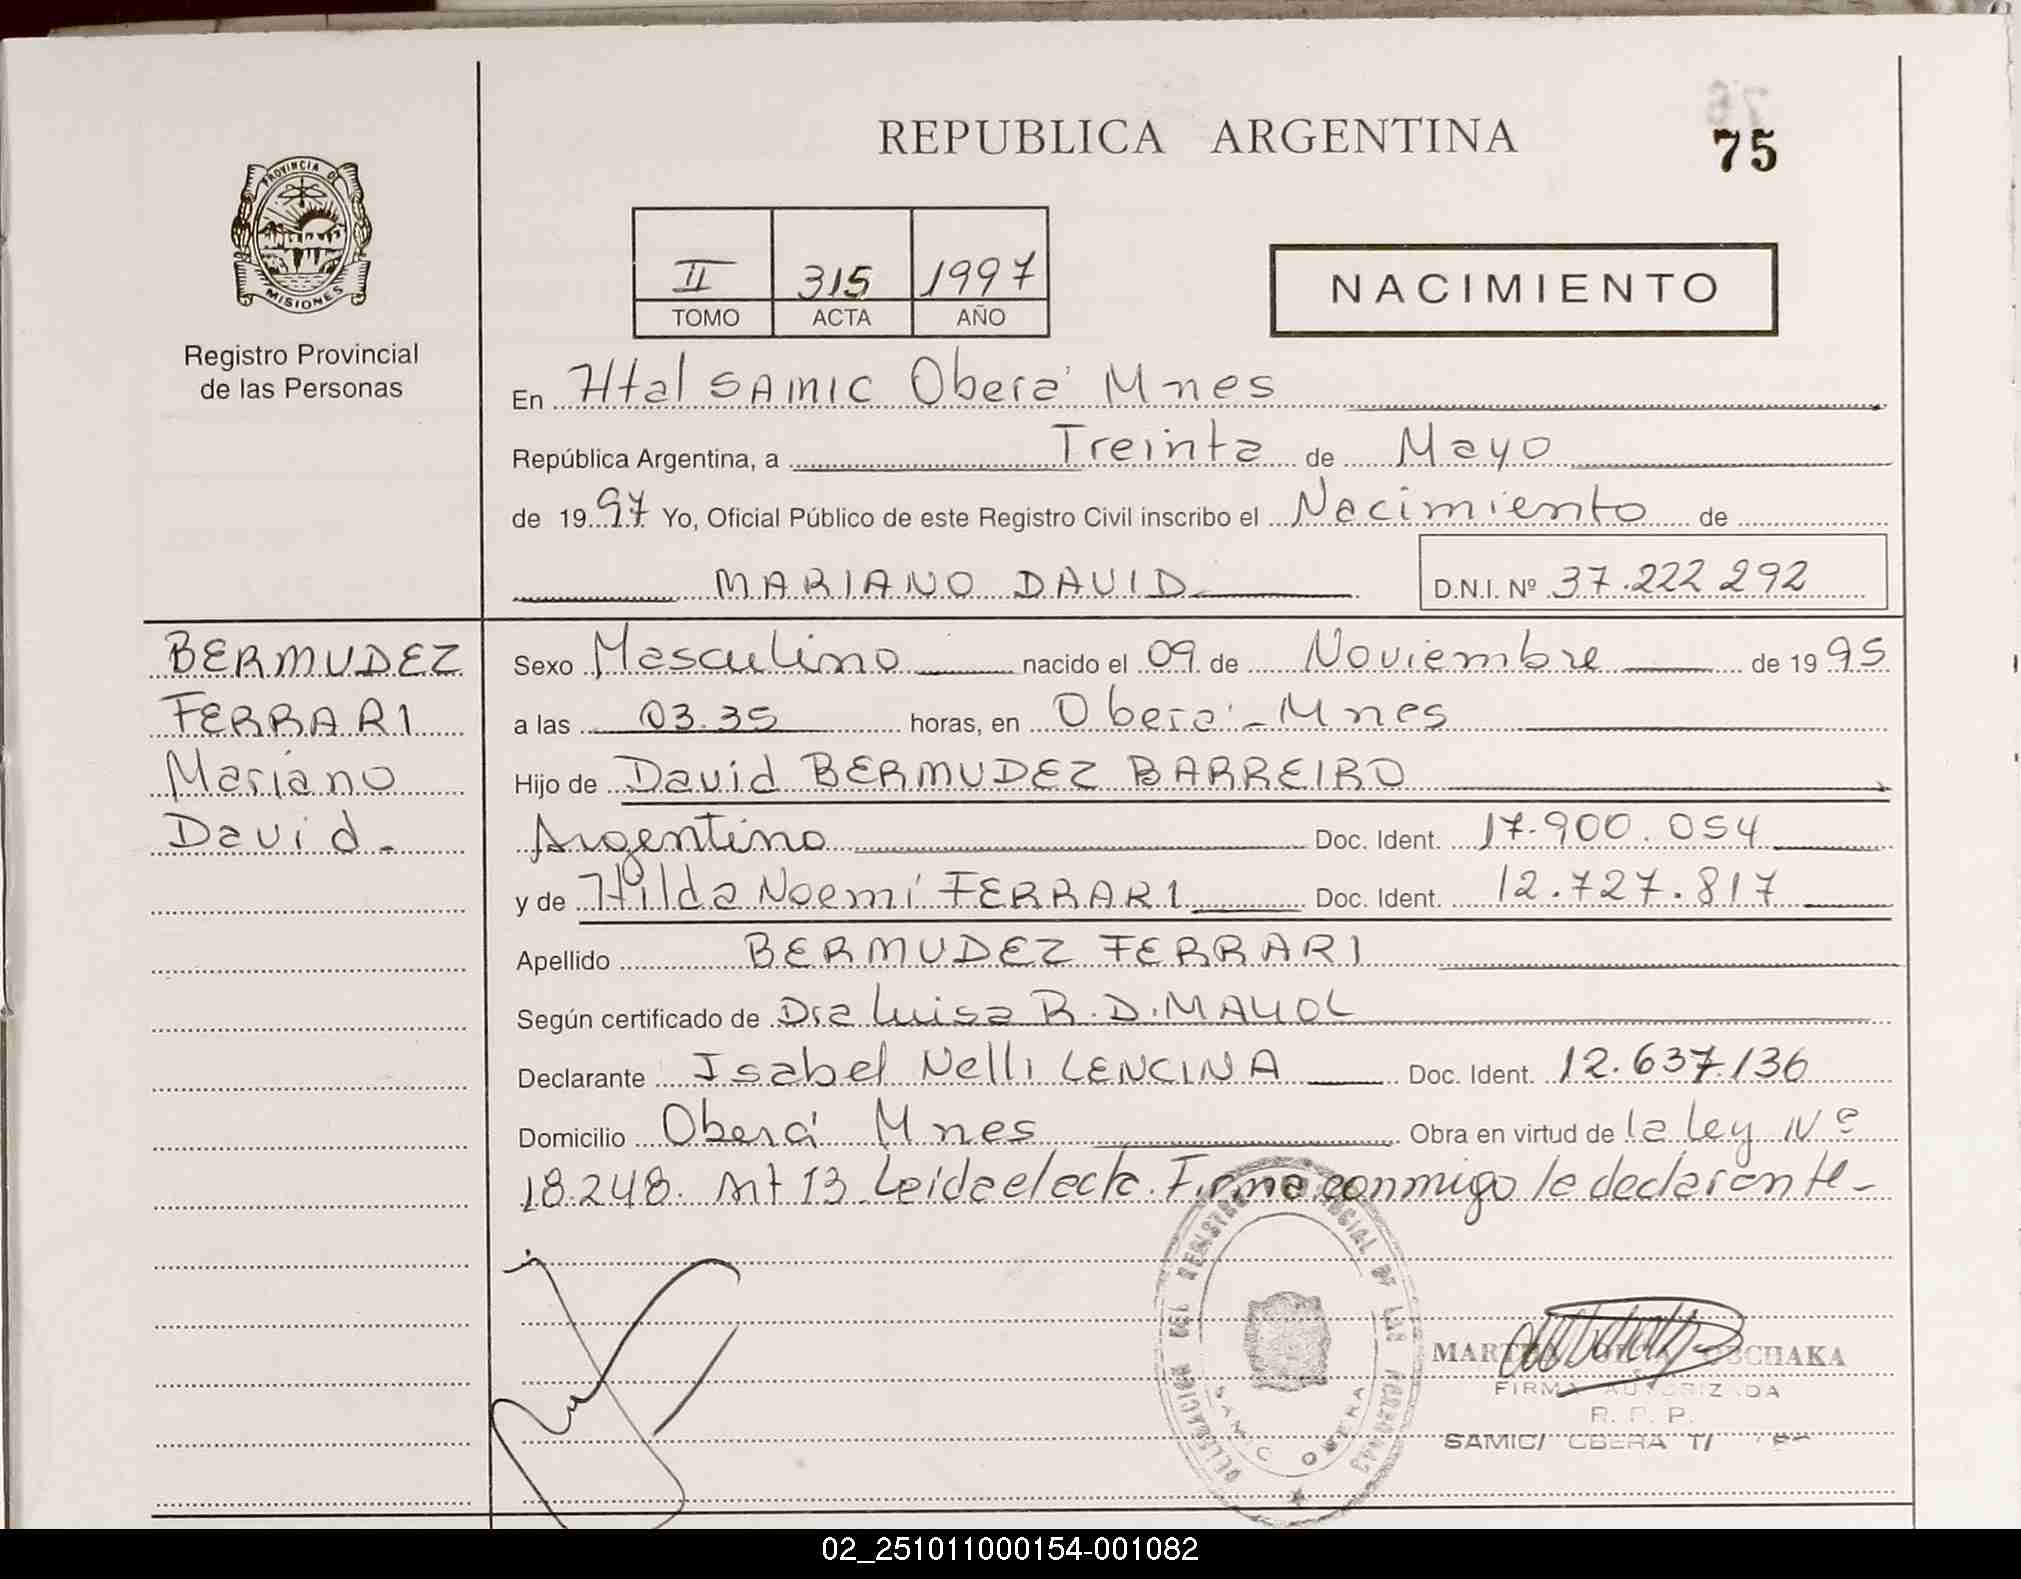 REPUBLICA ARGENTINA
75
PROVINCIA DE
MISIONES
Registro Provincial
de las Personas
II 315 1997
TOMO ACTA AÑO
NACIMIENTO
En Htal SAMIC Oberá Mnes
República Argentina, a Treinta de Mayo
de 1997 Yo, Oficial Público de este Registro Civil inscribo el Nacimiento de
MARIANO DAVID
D.N.I. Nº 37.222 292
BERMUDEZ
FERRARI
Mariano
David.
Sexo Masculino nacido el 09 de Noviembre de 1995
a las 03.35 horas, en Oberá - Mnes
Hijo de David BERMUDEZ BARREIRO
Argentino Doc. Ident. 17.900.054
y de Hilda Noemí FERRARI Doc. Ident. 12.727.817
Apellido BERMUDEZ FERRARI
Según certificado de Dra Luisa R.D. MAYOL
Declarante Isabel Nelli LENCINA Doc. Ident. 12.637136
Domicilio Oberá Mnes Obra en virtud de la ley Nº
18.248. Art 13. Leída el acta. Firma conmigo la declarante -
DELEGACION DEL REGISTRO PROVINCIAL DE LAS PERSONAS
SAMIC OBERA
FIRMA AUTORIZADA
R. P. P.
SAMIC/ OBERA
02_251011000154-001082